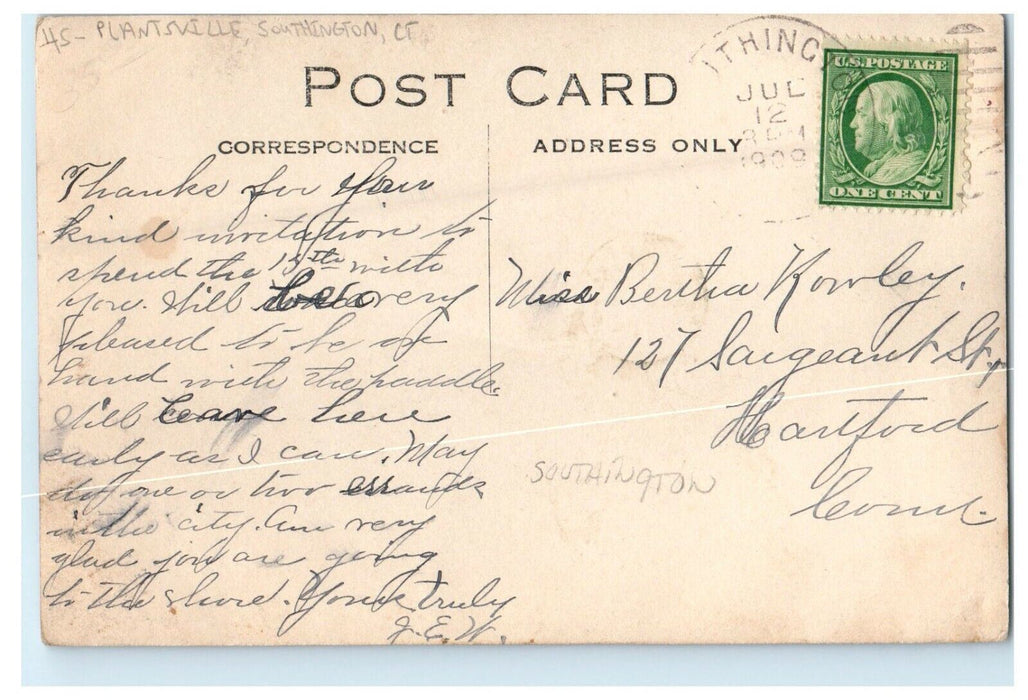 45- PLANTSVILLE, SOUTHINGTON, CT
POST CARD
CORRESPONDENCE
ADDRESS ONLY
THING
JUL
12
1909
U.S. POSTAGE
ONE CENT
Thanks for your
kind invitation to
spend the 15th with
you. Will be very
pleased to be on
hand with the paddle.
Will leave here
early as I can. May
do one or two errands
in the city. Am very
glad you are going
to the shore. Yours truly
J. E. W.
Miss Bertha Rowley.
127 Sargeant St.,
Hartford
Conn.
SOUTHINGTON